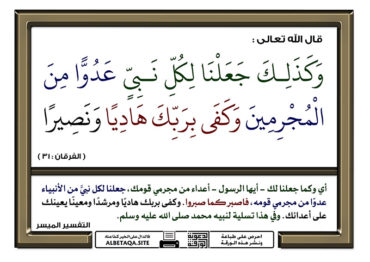 قال الله تعالى :
وَكَذَلِكَ جَعَلْنَا لِكُلِّ نَبِيٍّ عَدُوًّا مِنَ
الْمُجْرِمِينَ وَكَفَى بِرَبِّكَ هَادِيًا وَنَصِيرًا
( الفرقان : ٣١ )
أي وكما جعلنا لك - أيها الرسول - أعداء من مجرمي قومك، جعلنا لكل نبيٍّ من الأنبياء
عدوًا من مجرمي قومه، فاصبر كما صبروا. وكفى بربك هاديًا ومرشدًا ومعينًا يعينك
على أعدائك. وفي هذا تسلية لنبيه محمد صلى الله عليه وسلم.
التفسير الميسر
احرص على طباعة
ونشر هذه الورقة
ALBETAQA.SITE